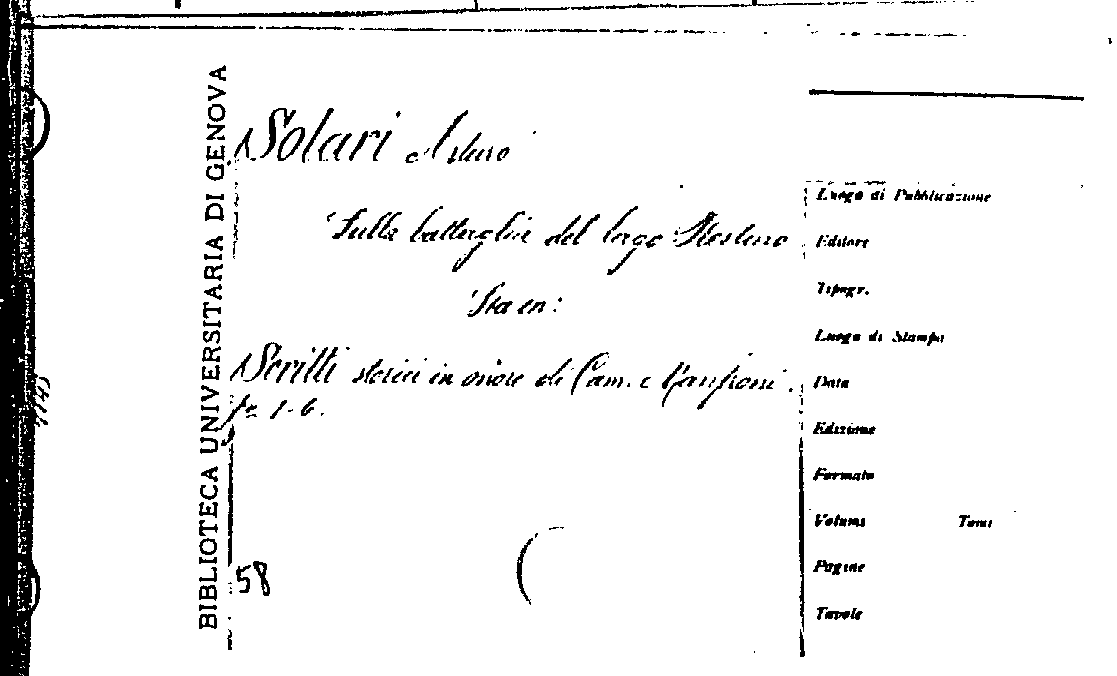 BIBLIOTECA UNIVERSITARIA DI GENOVA
Solari Arturo
Sulla battaglia del lago
Sta in:
Scritti storici in onore di Cam. e Manfroni.
p. 1-6.
58
Luogo di Pubblicazione
Editore
Tipogr.
Luogo di Stampa
Data
Edizione
Formato
Volumi Tomi
Pagine
Tavole